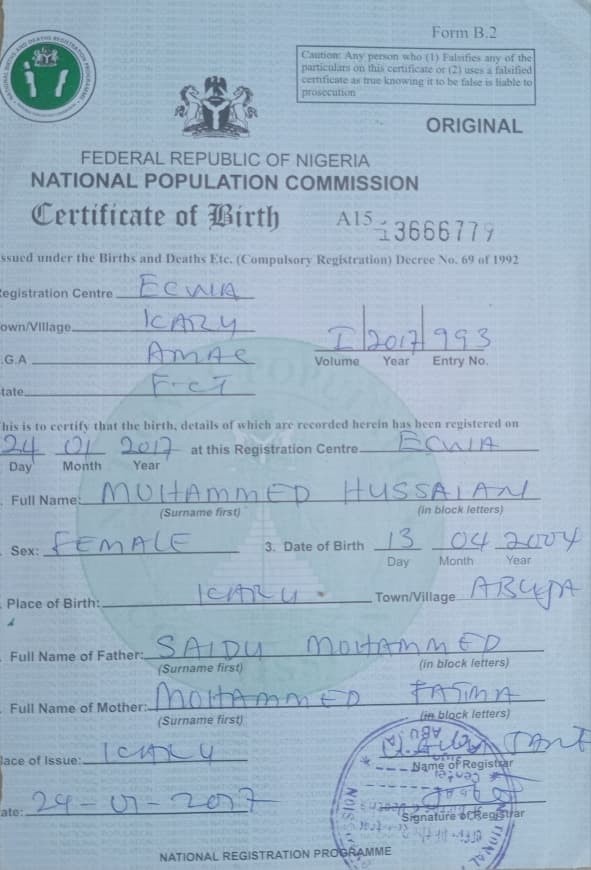 Form B.2
Caution: Any person who (1) Falsifies any of the
particulars on this certificate or (2) uses a falsified
certificate as true knowing it to be false is liable to
prosecution
ORIGINAL
FEDERAL REPUBLIC OF NIGERIA
NATIONAL POPULATION COMMISSION
Certificate of Birth A15 13666779
ssued under the Births and Deaths Etc. (Compulsory Registration) Decree No. 69 of 1992
egistration Centre ECWA
own/Village KARU
I 2017 993
.G.A AMAC
Volume Year Entry No.
tate F-CT
his is to certify that the birth, details of which are recorded herein has been registered on
24 01 2017 at this Registration Centre ECWA
Day Month Year
. Full Name: MUHAMMED HUSSAIAN
(Surname first) (in block letters)
. Sex: FEMALE 3. Date of Birth 13 04 2004
Day Month Year
. Place of Birth: KARU Town/Village ABUJA
. Full Name of Father: SAIDU MOHAMMED
(Surname first) (in block letters)
. Full Name of Mother: MOHAMMED FATIMA
(Surname first) (in block letters)
lace of Issue: KARU
Name of Registrar
ate: 24-01-2017
Signature of Registrar
NATIONAL REGISTRATION PROGRAMME